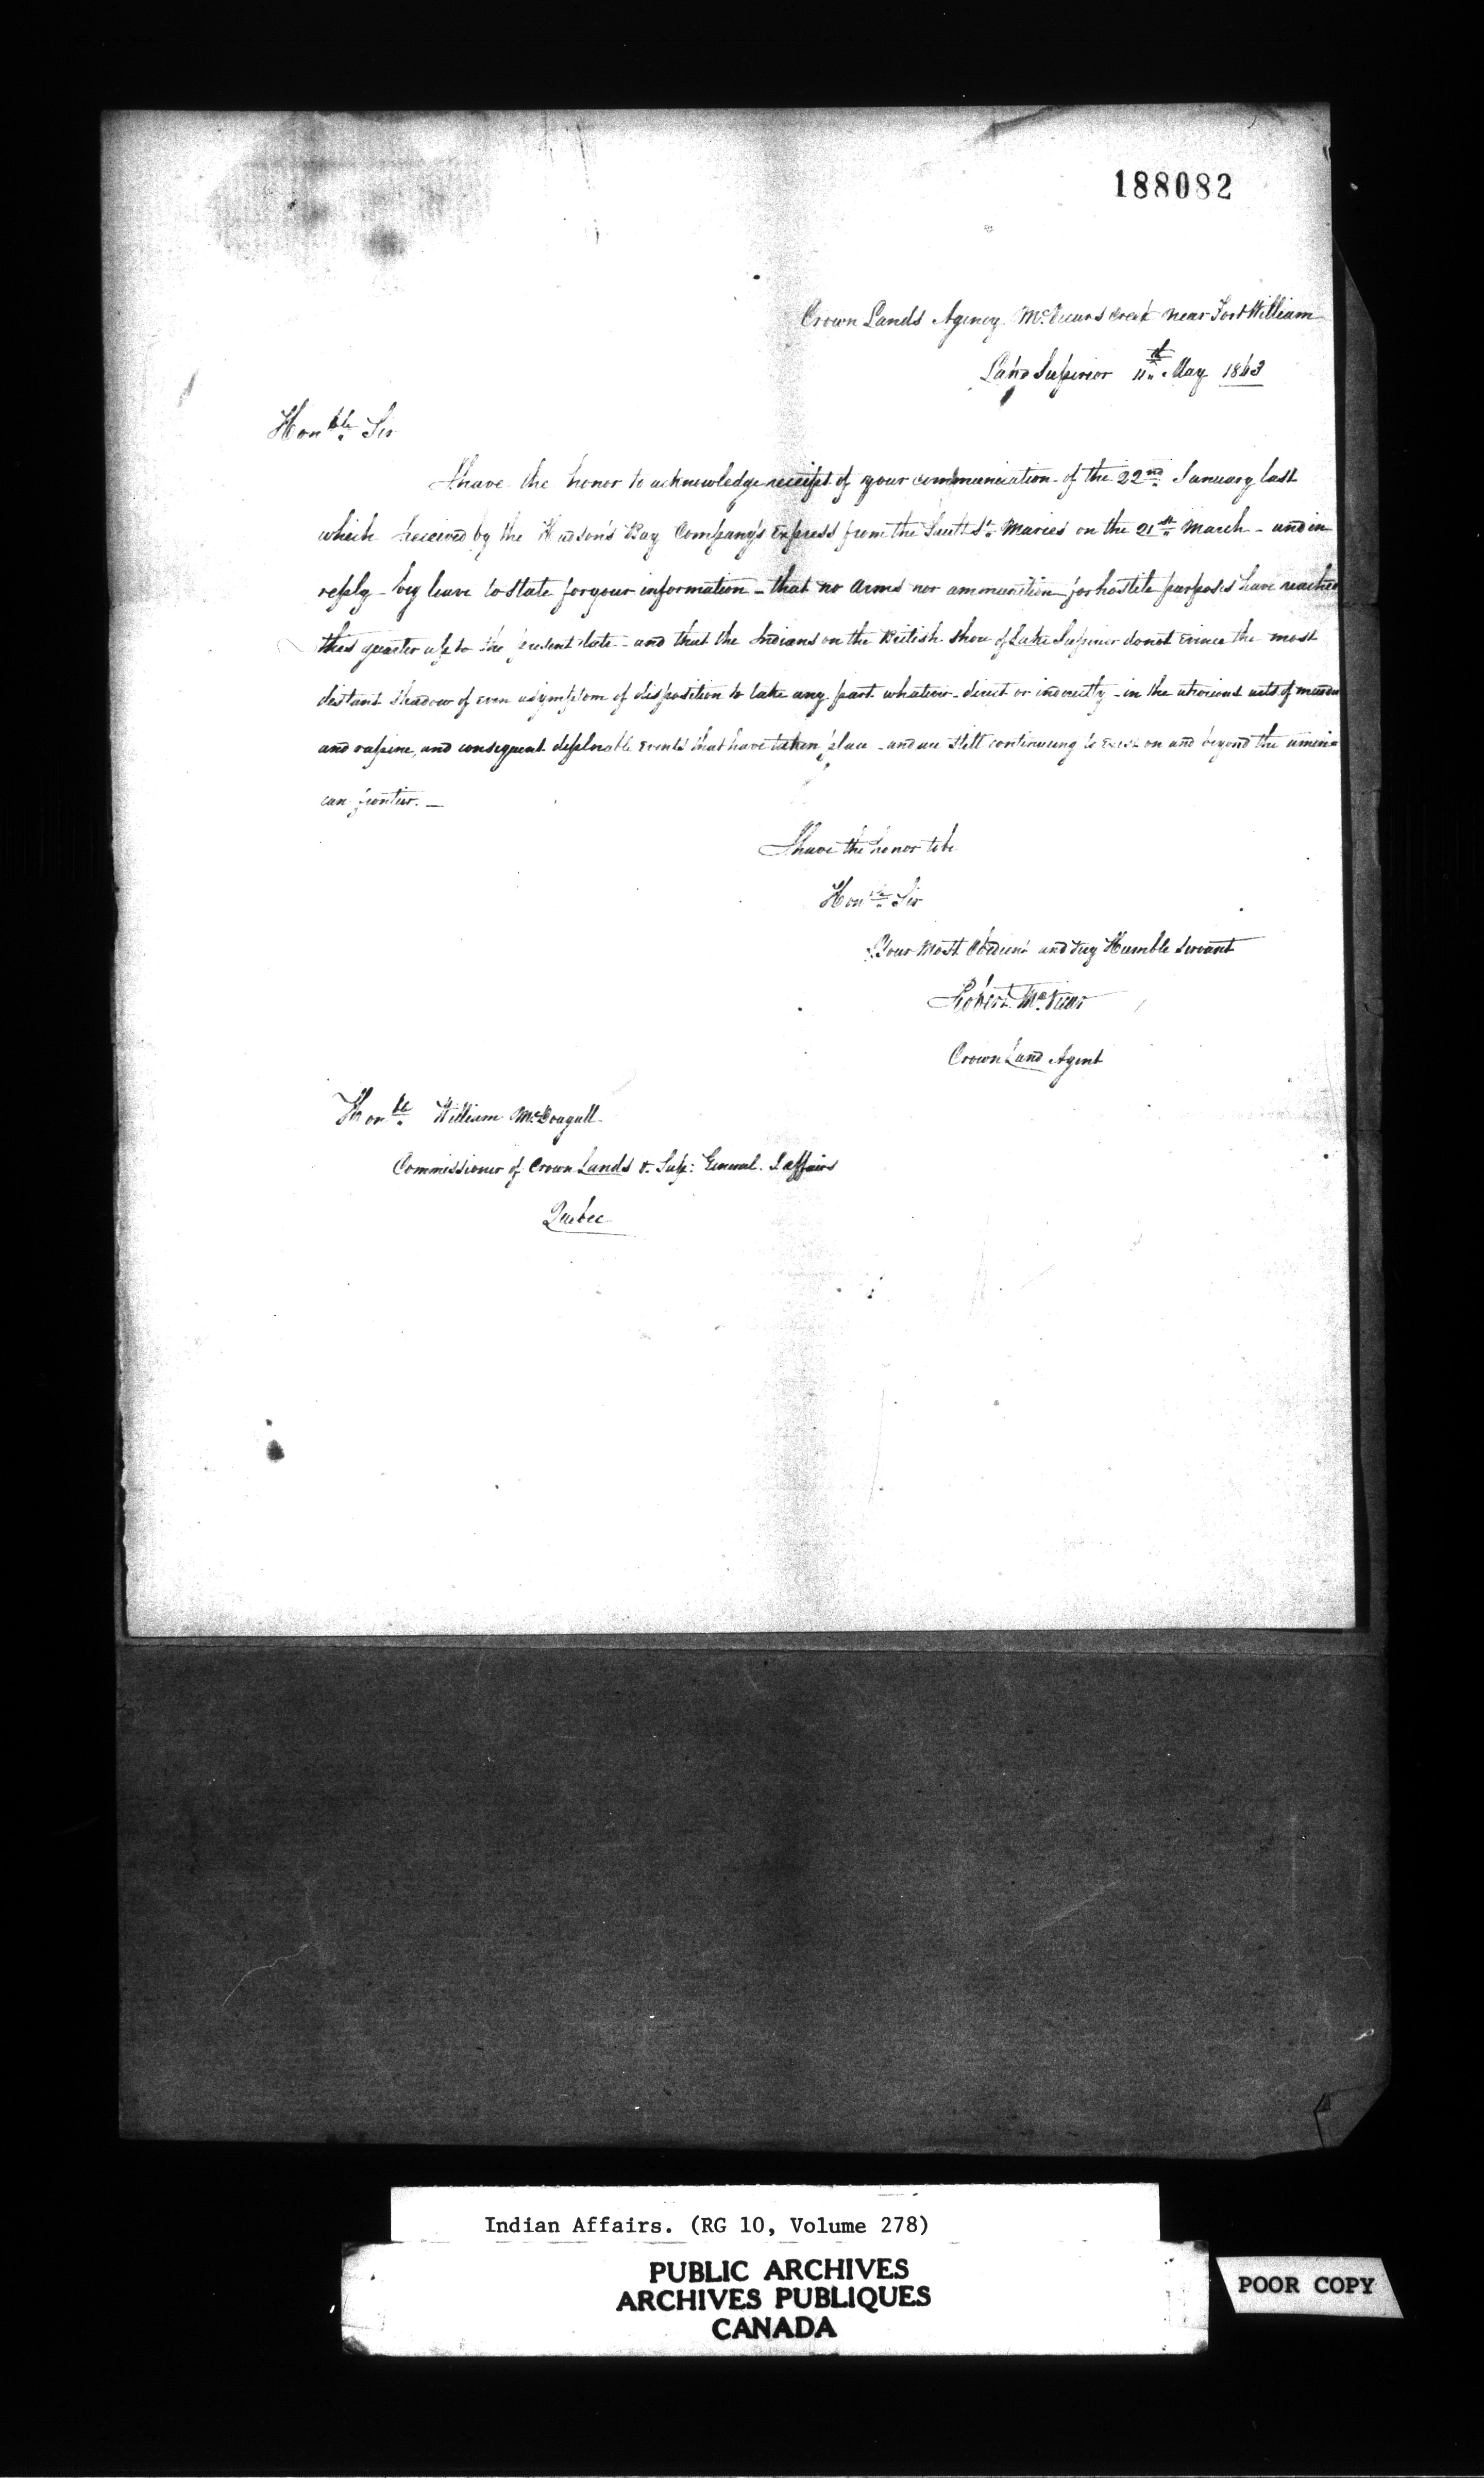 188082
Crown Lands Agency McVicars Creek near Fort William
Lake Superior 11th May 1863
Honble Sir
I have the honor to acknowledge receipt of your communication of the 22nd January last
which received by the Hudson's Bay Company's Express from the Sault St. Maries on the 21st March - and in
reply - beg leave to state for your information - that no arms nor ammunition for hostile purposes have reached
this quarter up to the present date - and that the Indians on the British shore of Lake Superior do not evince the most
distant shadow of even a symptom of disposition to take any part whatever - direct or indirectly - in the atrocious acts of murder
and rapine, and consequent deplorable events that have taken place - and are still continuing to exist on and beyond the Ameri=
can frontier. -
I have the honor to be
Honble Sir
Your Most Obedient and very Humble Servant
Robert McVicar
Crown Land Agent
Honble William McDougall
Commissioner of Crown Lands & Sup: General. I affairs
Quebec
Indian Affairs. (RG 10, Volume 278)
PUBLIC ARCHIVES
ARCHIVES PUBLIQUES
CANADA
POOR COPY